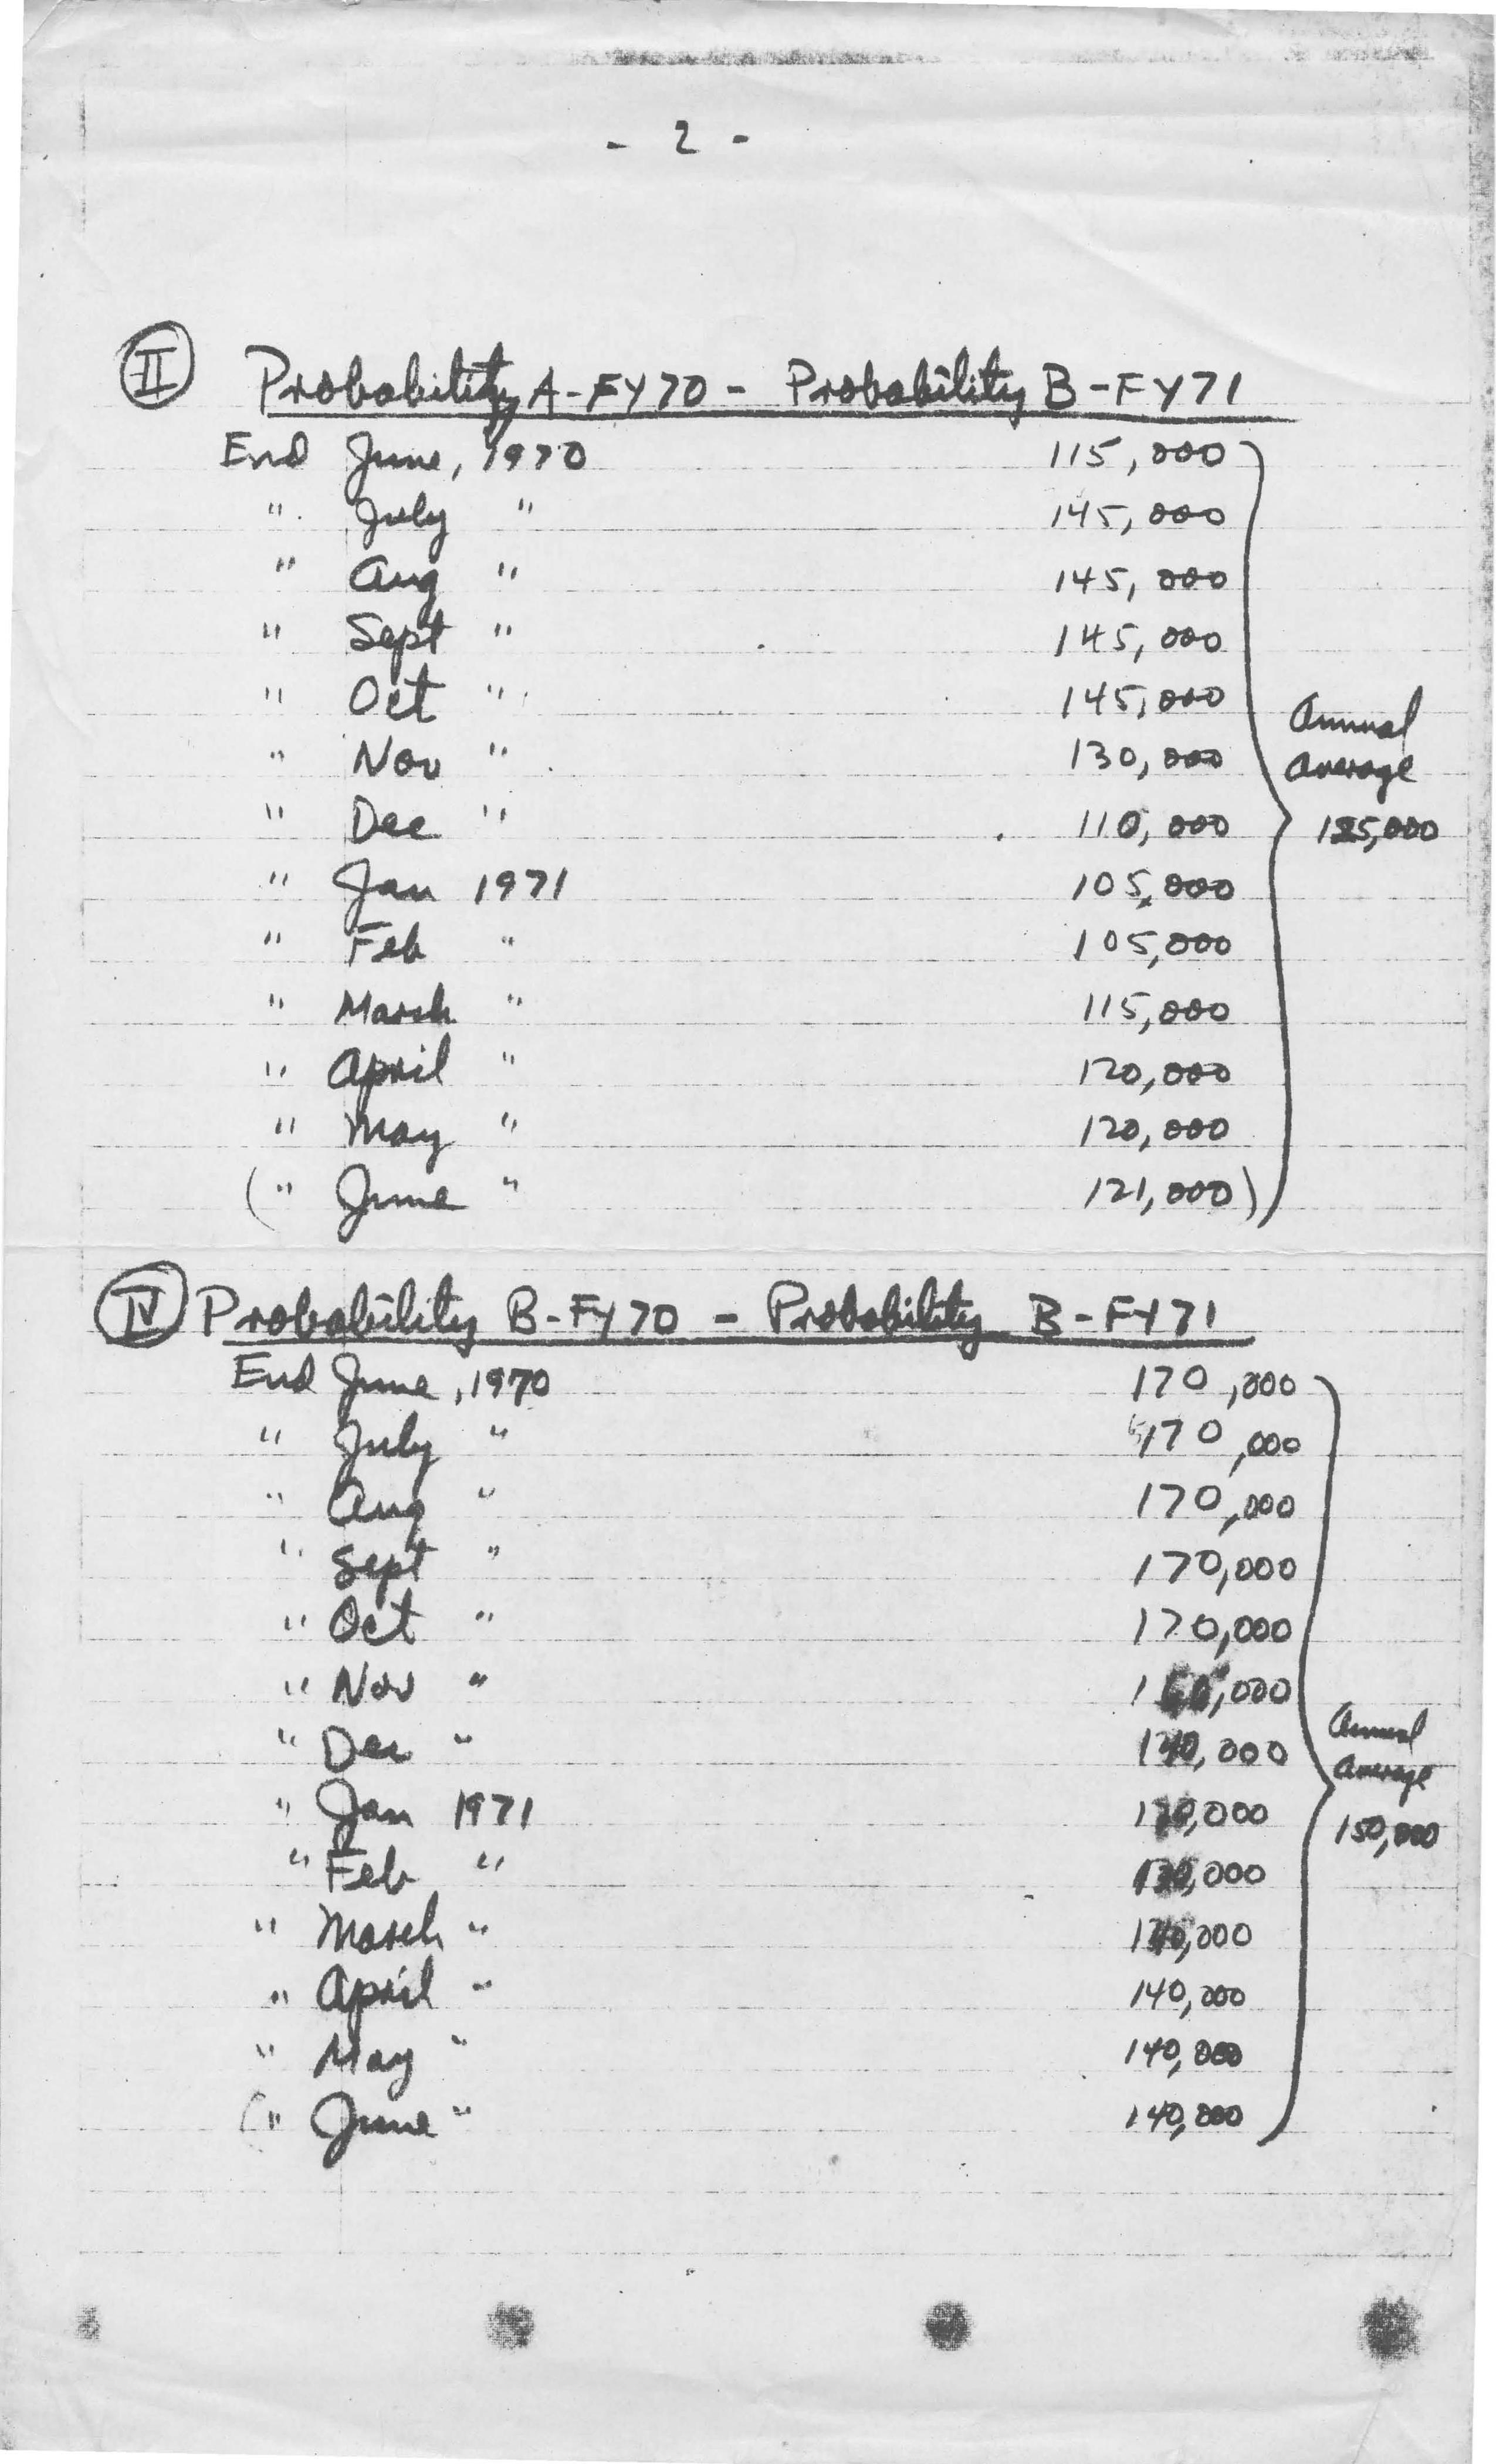 - 2 -
II Probability A-FY70 - Probability B-FY71
End June, 1970 115,000
" July " 145,000
" Aug " 145,000
" Sept " 145,000
" Oct " 145,000
" Nov " 130,000
" Dec " 110,000
" Jan 1971 105,000
" Feb " 105,000
" March " 115,000
" April " 120,000
" May " 120,000
(" June " 121,000)
Annual
Average
125,000
IV Probability B-FY70 - Probability B-FY71
End June, 1970 170,000
" July " 170,000
" Aug " 170,000
" Sept " 170,000
" Oct " 170,000
" Nov "
" Dec "
" Jan 1971
" Feb "
" March "
" April " 140,000
" May " 140,000
(" June " 140,000
Annual
Average
150,000